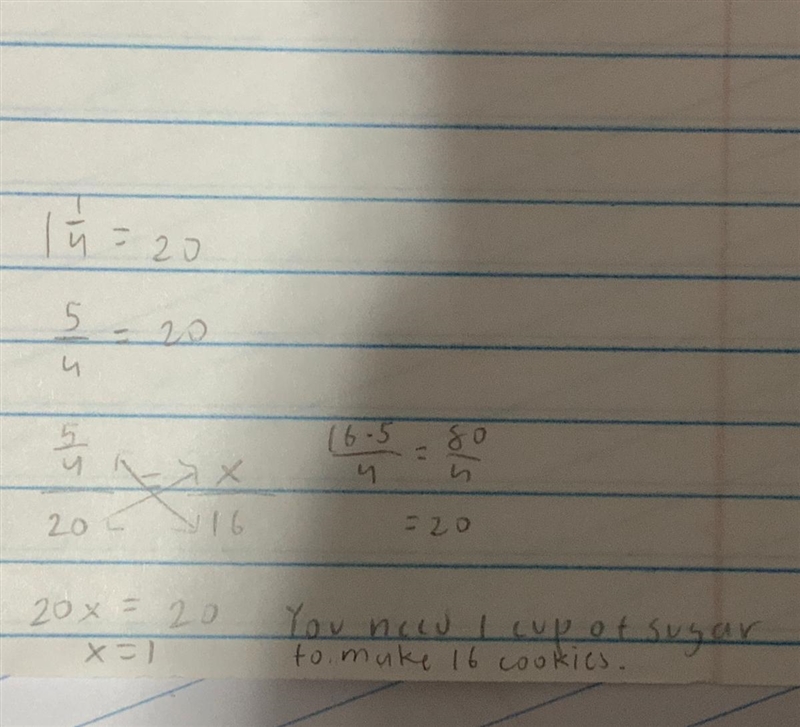 1 1/4 = 20
5/4 = 20
5/4 / 20 = x / 16
16·5/4 = 80/4
= 20
20x = 20
x = 1
You need 1 cup of sugar
to make 16 cookies.